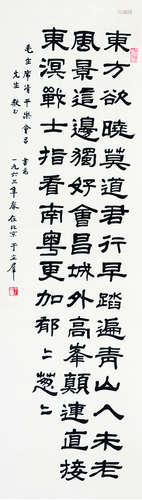 東方欲曉莫道君行早踏遍青山人未老
風景這邊獨好會昌城外高峯顛連直接
東溟戰士指看南粤更加郁〻葱〻
毛主席清平樂會昌 書為
先生 一九六二年春在北京 于立羣